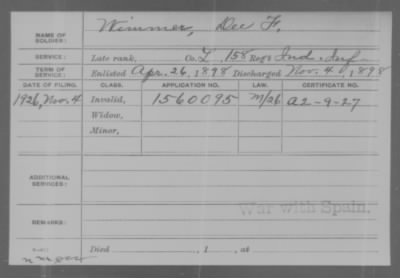 NAME OF SOLDIER: Wimmer, Dee F.
SERVICE: Late rank, Co. L, 158 Reg't Ind. Inf
TERM OF SERVICE: Enlisted Apr. 26, 1898 Discharged Nov. 4, 1898
DATE OF FILING. CLASS. APPLICATION NO. LAW. CERTIFICATE NO.
1926, Nov. 4 Invalid, 1560095 M/26 A2-9-27
Widow,
Minor,
ADDITIONAL SERVICES:
War with Spain.
REMARKS:
Died , 1 , at